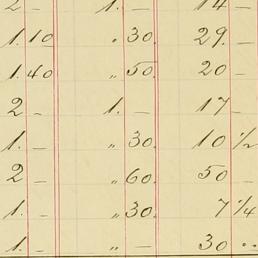 2 – 1. – 14 –
1. 10 „ 30. 29. –
1. 40 „ 50. 20 –
2 – 1. – 17 –
1. – „ 30. 10 ½
2 – „ 60. 50 –
1. – „ 30. 7 ¼
1. – „ – 30 ..